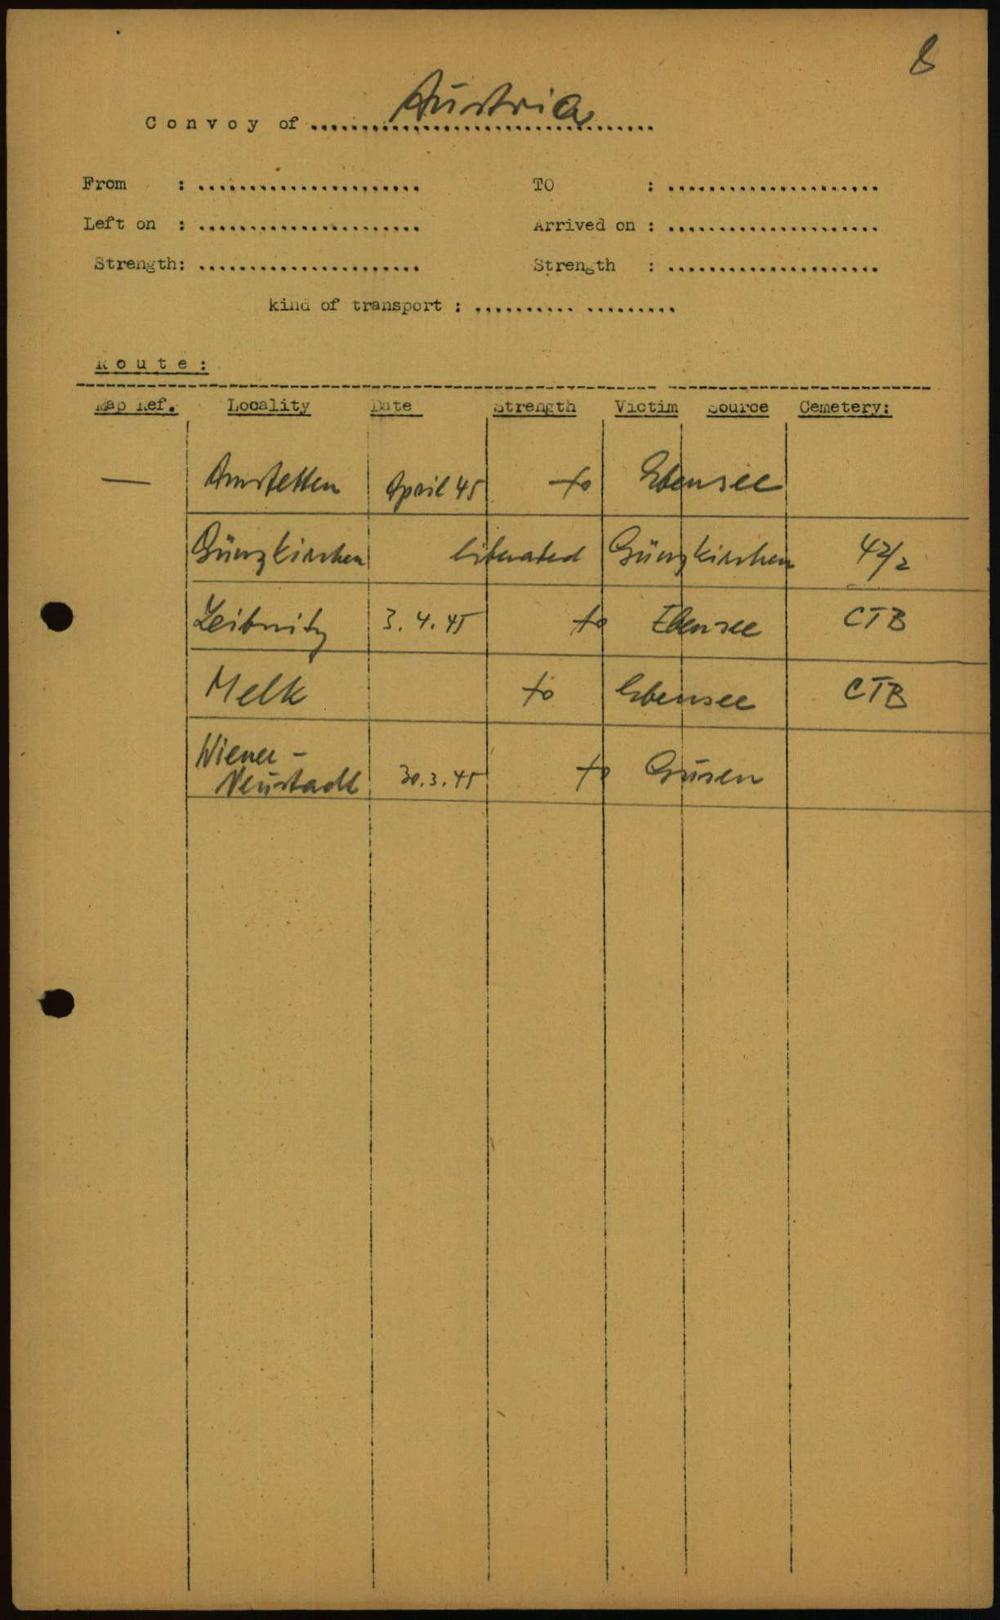 8
Convoy of Austria
From : TO :
Left on : Arrived on :
Strength: Strength :
kind of transport :
Route:
Map Ref. Locality Date Strength Victim Source Cemetery:
— Amstetten April 45 to Ebensee
Günzkirchen liberated Günzkirchen 42/2
Leibnitz 3.4.45 to Ebensee CTB
Melk to Ebensee CTB
Wiener-
Neustadt 30.3.45 to Gusen